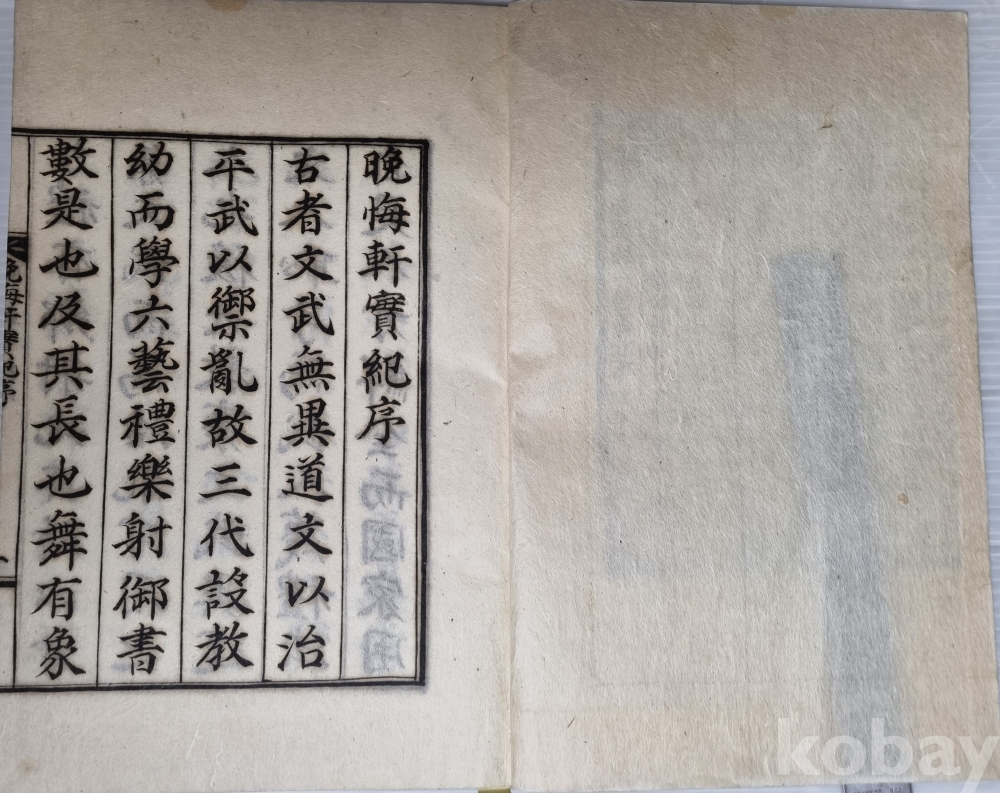 晚悔軒實紀序
古者文武無異道文以治
平武以禦亂故三代設教
幼而學六藝禮樂射御書
數是也及其長也舞有象
晚悔軒實紀序
kobay